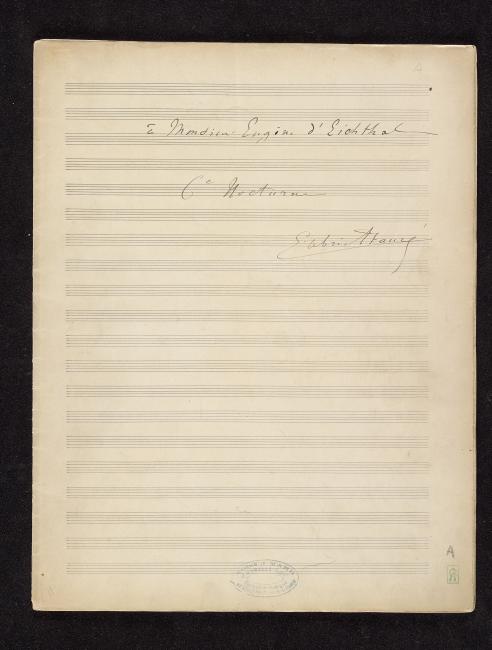 A
à Monsieur Eugène d'Eichthal
6e Nocturne
Gabriel Fauré
A